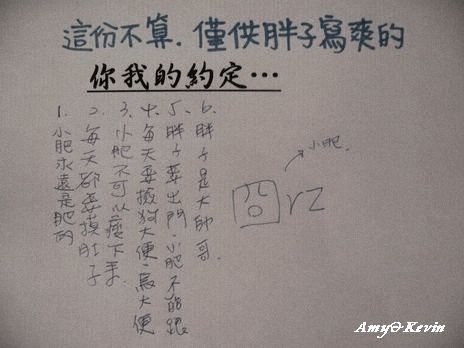 這份不算.僅供胖子寫爽的
你我的約定…
1.小肥永遠是肥的
2.每天都要摸肚子
3.小肥不可以瘦下來.
4.每天要撿狗大便、鳥大便
5.胖子要出門.小肥不能跟
6.胖子是大帥哥.
小肥.
囧rz
Amy&Kevin